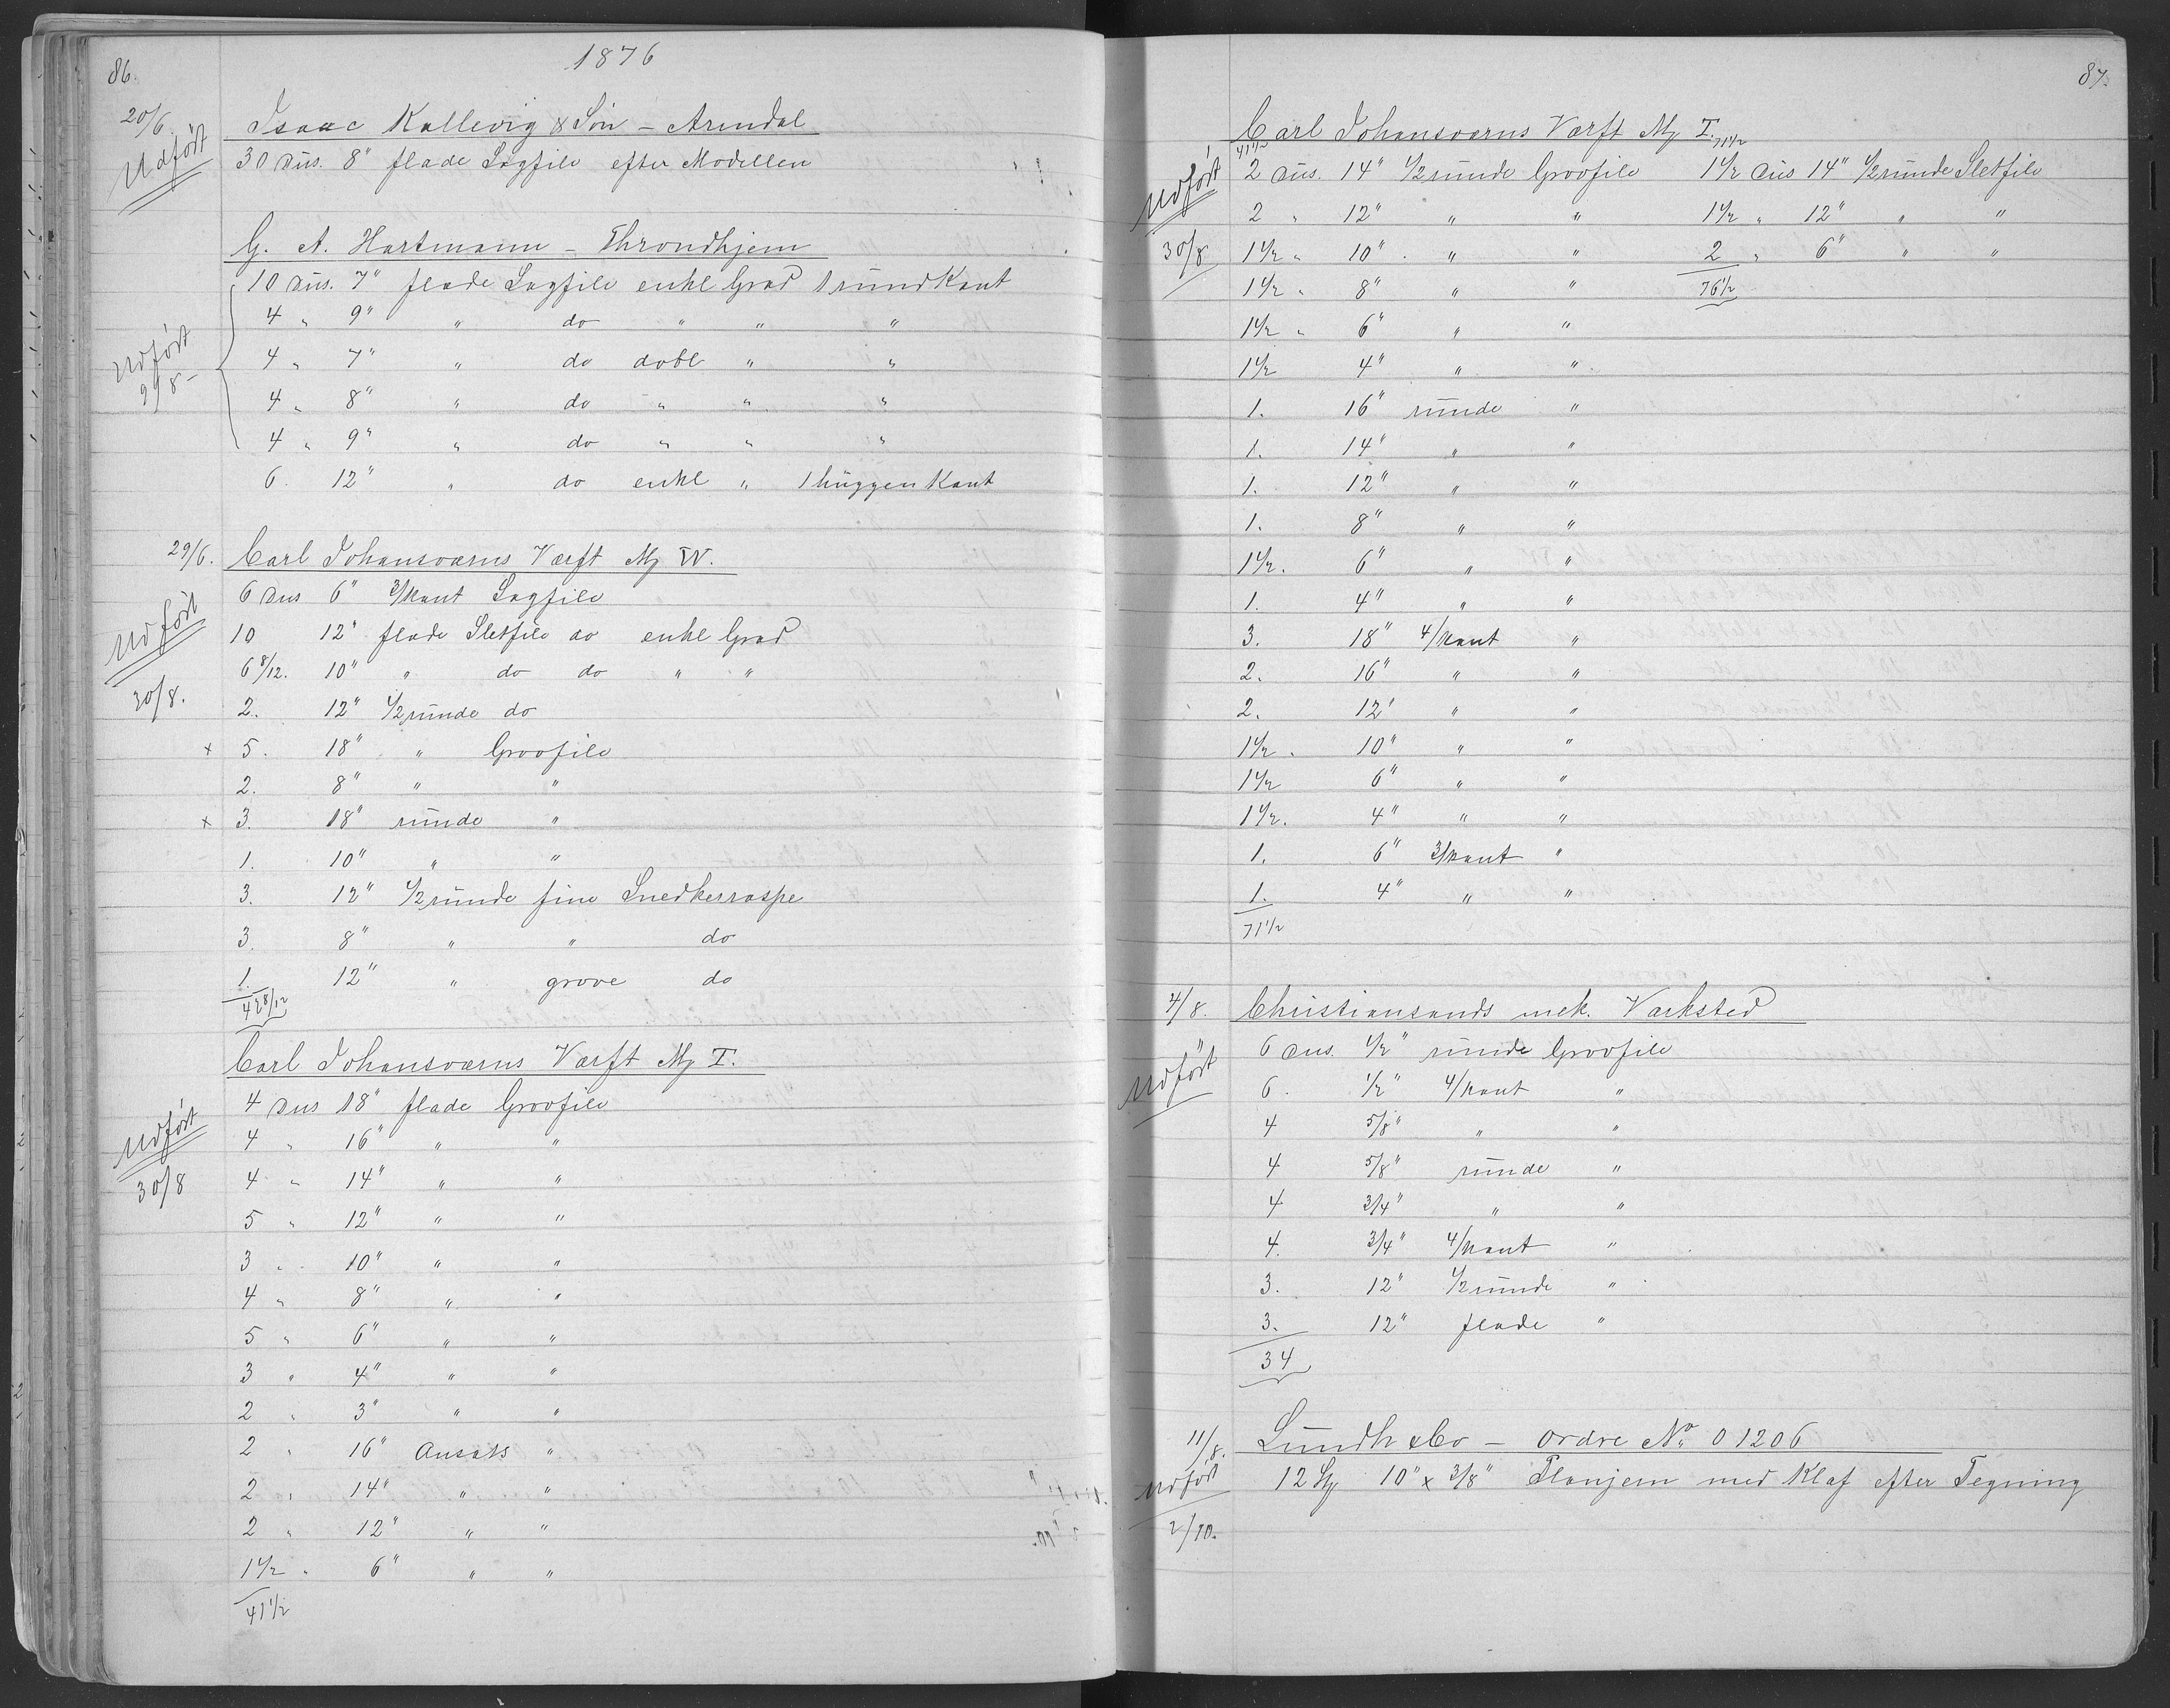 86.
1876
20/6. Isaac Kallevig & Søn – Arendal
Udført
30 Dus. 8" flade Sagfile efter Modellen
G. A. Hartmann – Throndhjem
10 Dus. 7" flade Sagfile enkl Grad 1 rund Kant
4 " 9" " do " " "
Udført
4 " 7" " do dobl " "
4 " 8" " do " " "
4 " 9" " do " " "
6. 12" " do enkl " 1 huggen Kant
29/6. Carl Johansværns Værft Mg IV.
6 Dus 6" 3/kant Sagfile
Udført
10 12" flade Sletfile do enkl Grad
6 8/12. 10" " do do " "
30/8.
2. 12" 1/2runde do
x 5. 18" " Groofile
2. 8" " "
x 3. 18" runde "
1. 10" " "
3. 12" 1/2runde fine Snedkerraspe
3. 8" " " do
1. 12" " grove do
42 8/12
Carl Johansværns Værft Mg I.
4 Dus 18" flade Groofile
Udført
4 " 16" " "
30/8
4 " 14" " "
5 " 12" " "
3 " 10" " "
4 " 8" " "
5 " 6" " "
3 " 4" " "
2 " 3" " "
2 " 16" Ansats "
2 " 14" " "
2 " 12" " "
1 1/2 " 6" " "
41 1/2
87.
Carl Johansværns Værft Mg I.
41 1/2 71 1/2
Udført
2 Dus. 14" 1/2runde Groofile 1 1/2 Dus 14" 1/2runde Sletfile
2 " 12" " " 1 1/2 " 12" " "
30/8
1 1/2 " 10" " " 2 " 6" " "
1 1/2 " 8" " " 76 1/2
1 1/2 " 6" " "
1 1/2 4" " "
1. 16" runde "
1. 14" " "
1. 12" " "
1. 8" " "
1 1/2. 6" " "
1. 4" " "
3. 18" 4/kant "
2. 16" " "
2. 12" " "
1 1/2. 10" " "
1 1/2 6" " "
1 1/2. 4" " "
1. 6" 3/kant "
1. 4" " "
71 1/2
4/8. Christiansands mek. Værksted
6 Dus. 1/2" runde Groofile
Udført
6. 1/2" 4/kant "
4 5/8" " "
4 5/8" runde "
4 3/4" " "
4. 3/4" 4/kant "
3. 12" 1/2runde "
3. 12" flade "
34
11/8. Lundh & Co – Ordre No 01206
Udført
12 Stk 10" x 3/8" Planjern med Klaf efter Tegning
2/10.